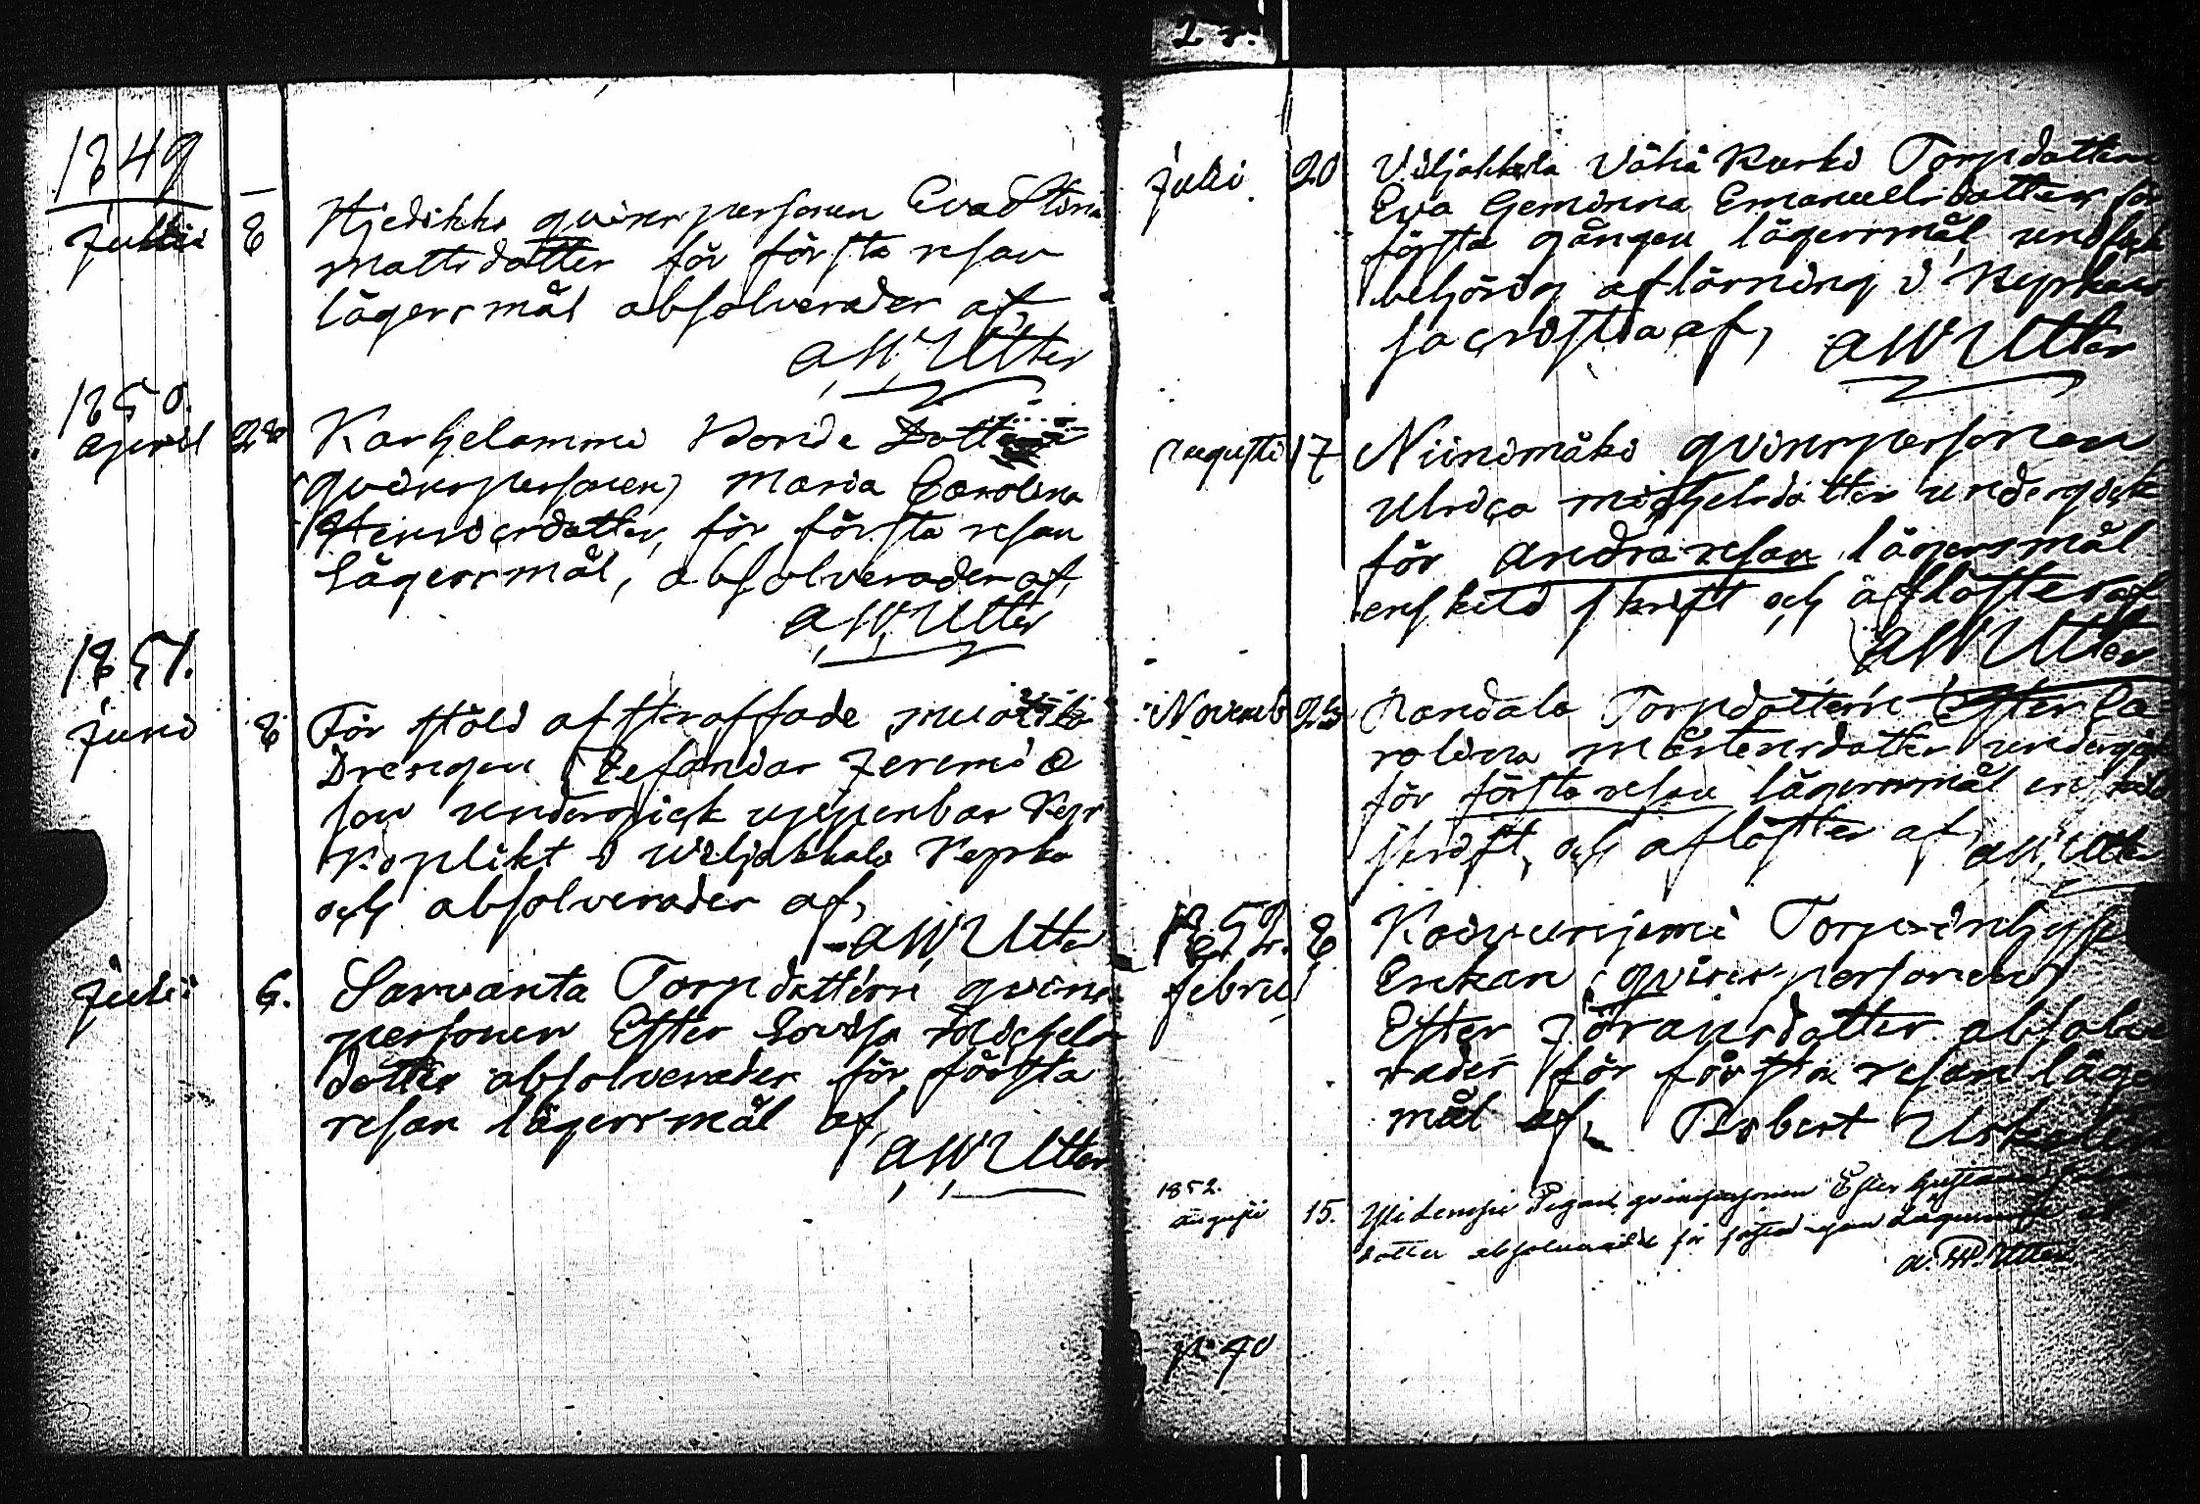 2 r.
1849
Julii 8 Hjedikko qvinspersonen Eva Stina
Matts dotter för första resan
lägersmål absolverades af,
A, W, Utter
1850.
April 28 Karhelammi Bonde
(qvinspersonen) Maria Carolina
Henricsdotter, för första resan
lägersmål, absolverades af,
A, W, Utter
1851.
Juni 8 För stöld afstraffade
Drengen Jeremiæ
son undergick uppenbar Kyr
koplikt i Wiljakkala Kyrka
och absolverades af,
A W, Utter
Julii 6. Sarvanta Torpdottern qvins
personen Ester Lovisa Michels
dotter absolverades för första
resan lägersmål af,
A, W, Utter
Juli 20 Viljakkala Vähä Kurki Torpdottern
Eva Gemina Emanuelsdotter för
första gången lägersmål, undfick
behörig aflösning i Kyrkans
sacristia af, A W Utter
Augusti 17 Niinimäki qvinspersonen
Ulrica Michelsdotter undergick
för andra resan lägersmål
enskild skrift och aflöstes af
A W Utter
Novemb 23 Torpdottern Ester Ca
rolina Mårtensdotter undergick
för första resan lägersmål enskild
skrift, och aflöstes af, A W, Utter
1852. 8 Koivuniemi Torp-inhyses
Febru Enkan (qvins-personen)
Ester Jöransdotter absolve
rades för första resan läger
mål af,
1852.
Augusti 15. qvinspersonen Ester Gustava
dotter absolverades för första resan Lägersmål af
A. W. Utter